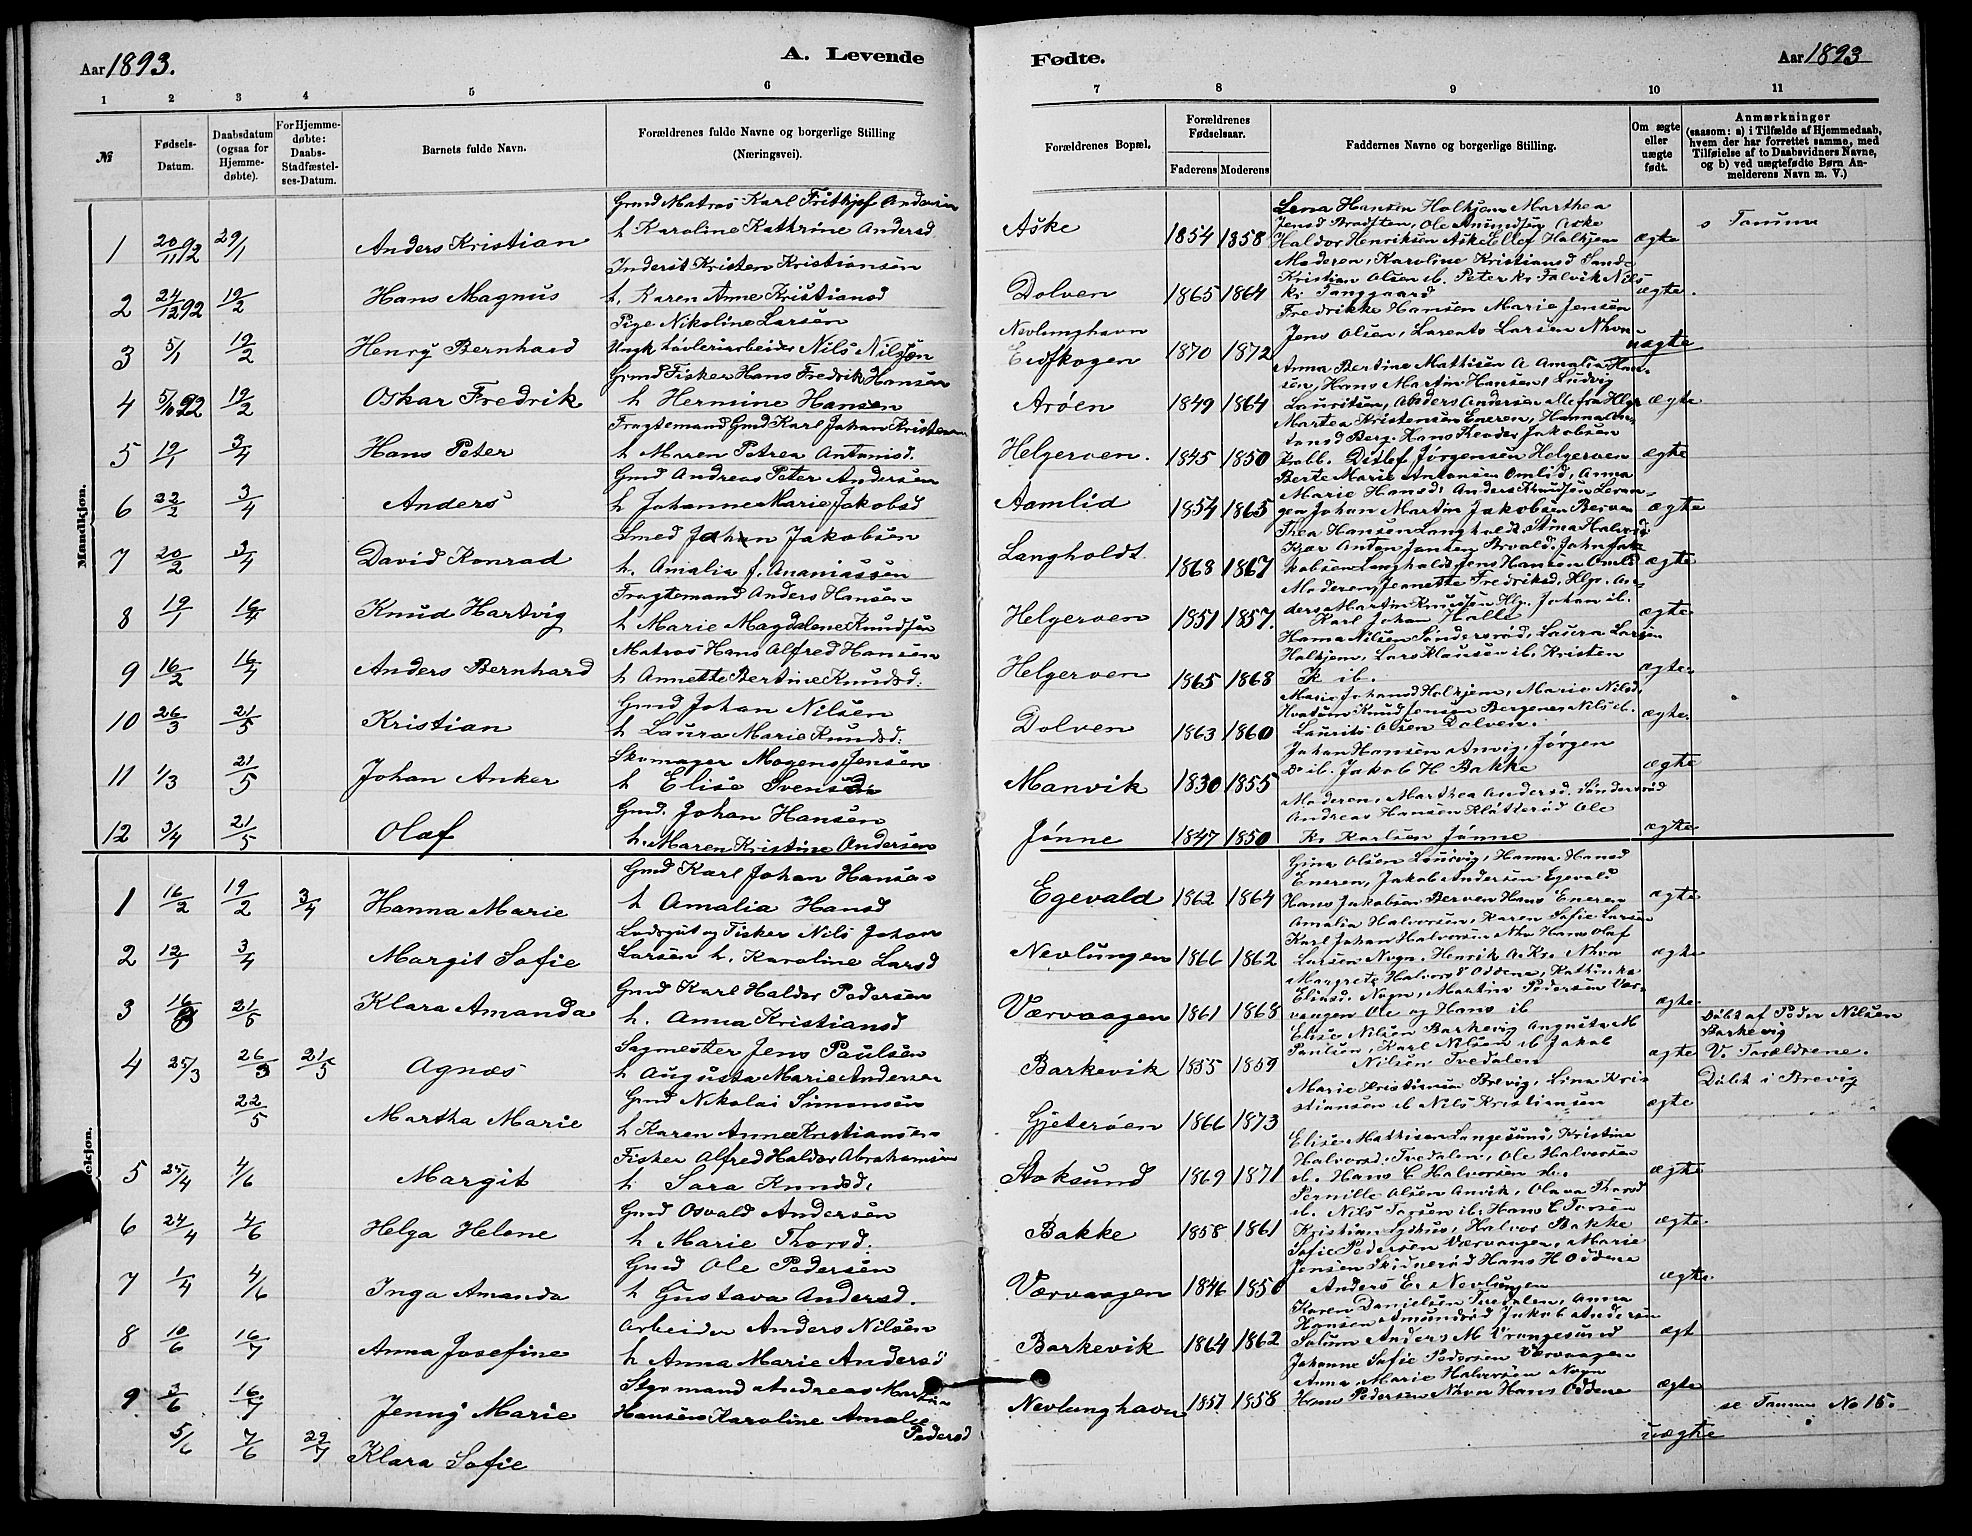 Aar 1893.
A. Levende
Fødte.
Aar 1893
1 2 3 4 5 6
7 8 9 10 11
№
Fødsels-Datum.
Daabsdatum (ogsaa for Hjemme-døbte).
For Hjemme-døbte: Daabs-Stadfæstel-ses-Datum.
Barnets fulde Navn.
Forældrenes fulde Navne og borgerlige Stilling (Næringsvei).
Forældrenes Bopæl.
Forældrenes Fødselsaar.
Faderens Moderens
Faddernes Navne og borgerlige Stilling.
Om ægte eller uægte født.
Anmærkninger
(saasom: a) i Tilfælde af Hjemmedaab, hvem der har forrettet samme, med Tilføielse af to Daabsvidners Navne, og b) ved uægtefødte Børn An-melderens Navn m. V.)
Mandkjøn.
1 20/11 92 29/1 Anders Kristian
Gmd Matros Karl Frithjof Andersen
h Karoline Kathrine Andersd
Aske 1854 1858
Lena Hansen Halkjem Marthea
Jensd Bratten, Ole Amundsen Aske
Haldor Henriksen Aske Ellef Halkjem
ægte
s Tanum
2 24/12 92 19/2 Hans Magnus
Inderst Kristen Kristiansen
h. Karen Anne Kristiansd
Dolven 1865 1864
Moderen, Karoline Kristiansd Sand
Kristian Olsen ib. Peter Kr Falvik Nils
Kr Tanggaard
ægte.
3 5/1 19/2 Henry Bernhard
Pige Nikoline Larsen
Ungk Løvleriarbeider Nils Nilssen
Nevlunghavn
Eidfkogen 1870 1872
Fredrikke Hansen Marie Jensen
Jens Olsen, Larents Larsen Nhvn
uægte
4 92 19/2 Oskar Fredrik
Gmd Fisker Hans Fredrik Hansen
h Hermine Hansen
Arøen 1849 1864
Anna Bertine Mathisen A Amalia Han-
sen, Hans Martin Hansen, Ludvig
Lauritsen, Anders Andersen alle fra Hlgr
ægte
5 19/1 3/4 Hans Peter
Fragtemand Gmd Karl Johan Kristensen
h Maren Petrea Antonisd.
Helgeroen. 1845 1850
Martea Kristensen Eneren, Hanna An-
tonsd Berg. Hans Theodor Jakobsen
Krabb. Ditlef Jørgensen Helgeroen
ægte
6 22/2 3/4 Anders
Gmd Andreas Peter Andersen
h Johanne Marie Jakobsd
Aamlid 1854 1865
Berte Marie Antonsen Omlid, Anna
Marie Hansd, Anders Knudsen Levan-
gen Johan Martin Jakobsen Berven
ægte
7 20/2 3/4 David Konrad
Smed Johan Jakobsen
h. Amalia f. Ananiassen
Langholdt. 1868 1867
Thea Hansen Langholdt, Stina Halvorsd
Kjær Anton Jansen Arvald. John Jak-
kobsen Langholdt Jens Hansen Omlid
ægte
8 19/1 16/4 Knud Hartvig
Fragtemand Anders Hansen
h Marie Magdalene Knudsen
Helgeroen 1851 1857.
Moderen, Jeanette Fredriksd, Hlgr. An-
ders Martin Knudsen Hlgr. Johan ib.
Karl Johan Halle
ægte
9 16/2 16/4 Anders Bernhard
Matros Hans Alfred Hansen
h Annette Bertine Knudsd.
Helgeroen 1865 1868
Hanna Nilsen Søndersrød, Laura Larsen
Halkjem, Lars Klausen ib. Kristen
K ib.
ægte
10 26/3 21/5 Kristian
Gmd Johan Nilsen
h Laura Marie Knudsd.
Dolven 1863 1860
Marie Johansd Halkjem, Marie Nilsd.
Hvatum Knud Jensen Bergene, Nils ib.
Laurits Olsen Dolven.
ægte.
11 1/3 21/5 Johan Anker
Skomager Mogens Jensen
h Elise Svensen
Manvik 1830 1855
Johan Hansen Anvig, Jørgen
Do ib. Jakob H Bakke
ægte
12 3/4 21/5 Olaf
Gmd. Johan Hansen
h. Maren Kristine Andersen
Jønne 1847 1850
Moderen, Marthea Andersd. Søndersrød
Andreas Hansen Klåtterød Ole
Kr Karlsen Jønne
ægte
1 16/2 19/2 3/4 Hanna Marie
Gmd Karl Johan Hansen
h Amalia Hansd
Egevald 1862 1864
Gina Olsen Laurvig, Hanna Hansd
Eneren, Jakob Andersen Egevald
Hans Jakobsen Berven Hans Eneren
ægte
2 12/1 3/4 Margit Sofie
Lodsgut og Fisker Nils Johan
Larsen h. Karoline Larsd
Nevlungen 1866 1862
Amalia Halvorsen, Karen Sofie Larsen
Karl Johan Halvorsen Nhv Hans Olaf
Larsen Nvgn. Henrik A. Kr. Nhvn
ægte
3 21/5 Klara Amanda
Gmd Karl Haldor Pedersen
h. Anna Kristiansd
Værvaagen 1861 1868
Margrete Halvorsd Oddene, Kathinka
Eliasd. Nvgn, Martin Pedersen Vær-
vaagen Ole og Hans ib
ægte
4 25/3 26/3 21/5 Agnes
Sagmester Jens Paulsen
h Augusta Marie Andersen
Barkevik 1855 1859
Elise Nilsen Barkevig Augusta M
Paulsen, Karl Nilsen ib Jakob
Nilsen Tvedalen
ægte
Døbt af Peder Nilsen
Barkevig
V. Forældrene.
22/5 Martha Marie
Gmd Nikolai Simonsen
h Karen Anne Kristiansen
Gjeterøen 1866 1873
Marie Kristiansen Brevig, Lina Kris-
stiansen ib Nils Kristiansen
ægte
Døbt i Brevig
5 25/4 4/6 Margit
Fisker Alfred Haldor Abrahamsen
h. Sara Knudsd,
Stoksund 1869 1871
Elise Mathisen Langesund, Kristine
Halvorsd. Tvedalen, Ole Halvorsen
ib. Hans C Halvorsen ib.
ægte
6 24/4 4/6 Helga Helene
Gmd Osvald Andersen
h Marie Thorsd.
Bakke 1858 1861
Pernille Olsen Anvik, Olava Thorsd
ib. Nils Torsen ib. Hans C Torsen
Kristian Lyshus, Halvor Bakke
ægte
7 1/4 4/6 Inga Amanda
Gmd Ole Pedersen
h Gustava Andersd.
Værvaagen 1846 1850
Sofie Pedersen Værvaagen, Marie
Jensen Skidnerød Hans H Oddene
Anders E. Nevlungen
ægte.
8 10/6 16/7 Anna Josefine
Arbeider Anders Nilsen
h Anna Marie Andersd
Barkevik 1864 1862
Karen Danielsen Tvedalen, Anna
Hansen Amundrød Jakob Andersen
Salum Anders M Vrangesund
ægt
9 3/6 16/7 Jenny Marie
Styrmand Andreas Martin
Hansen Karoline Amalie
Pedersd
Nevlunghavn 1857 1858
Johanne Sofie Pedersen Værvaagen
Anna Marie Halvorsen Nvgn
Hans Pedersen Nhvn Hans Oddene
ægte
5/6 7/6 29/7 Klara Sofie
uægte
se Tanum No 15.